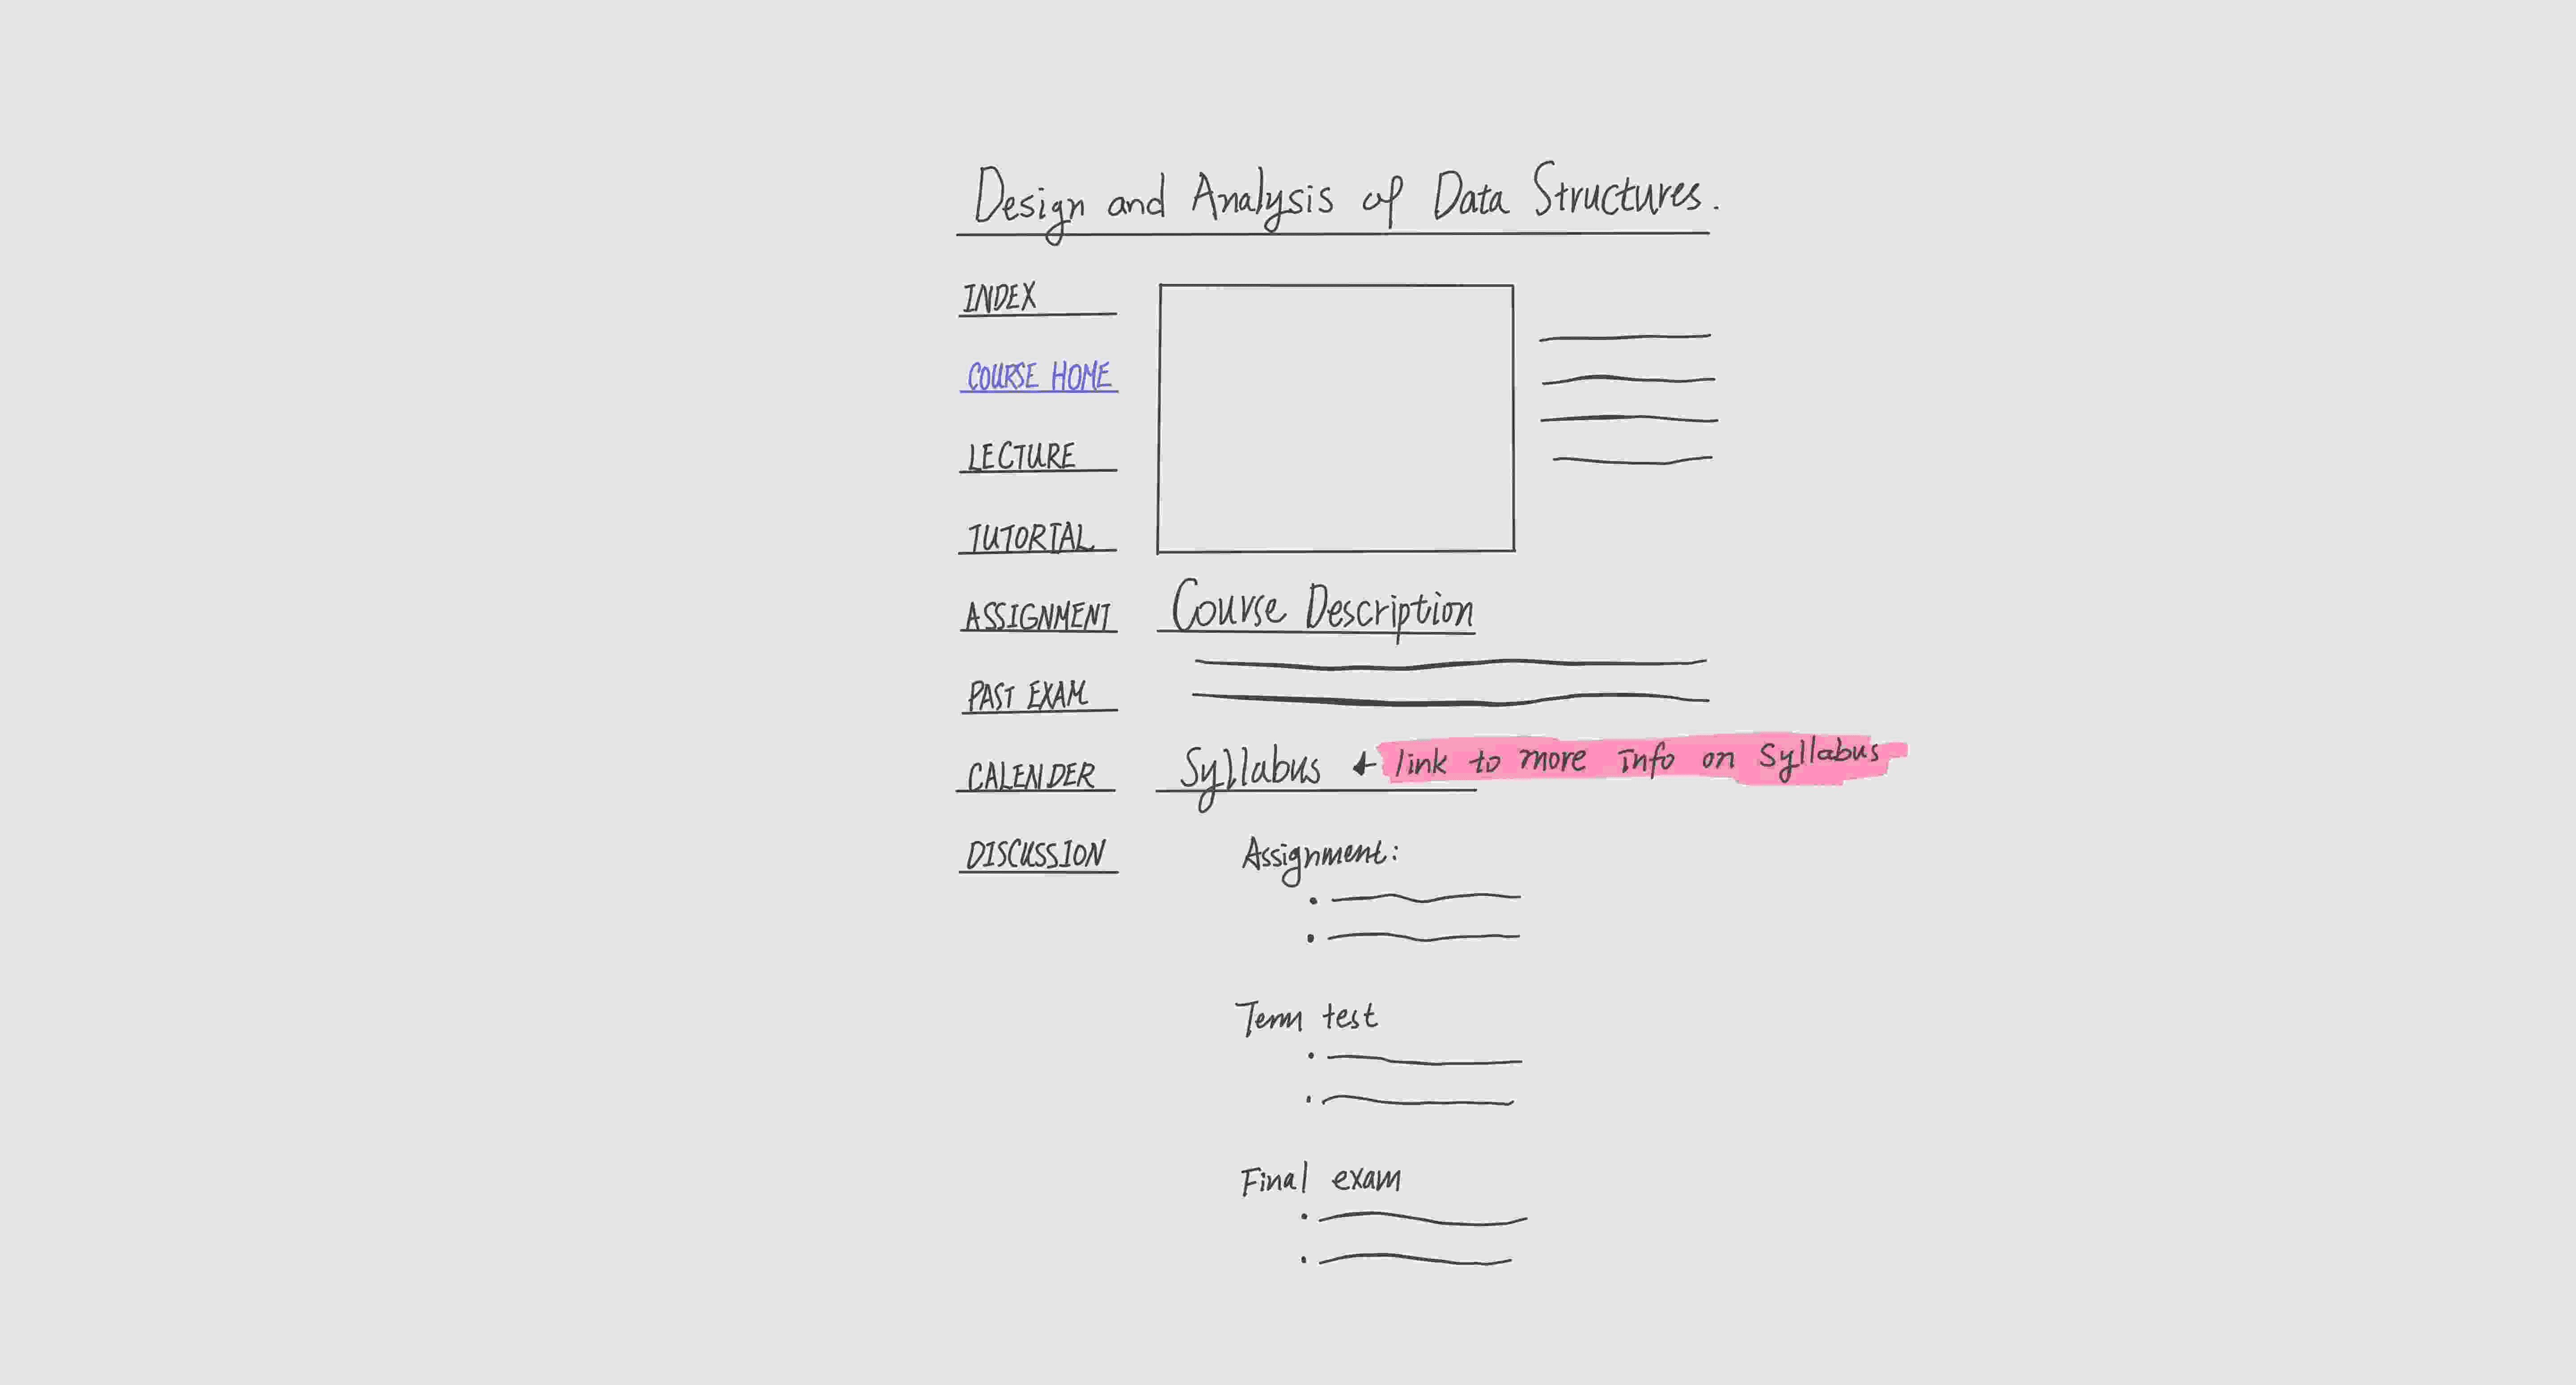 Design and Analysis of Data Structures.
INDEX
COURSE HOME
LECTURE
TUTORIAL
ASSIGNMENT
PAST EXAM
CALENDER
DISCUSSION
Course Description
Syllabus ← link to more info on Syllabus
Assignment:
Term test
Final exam